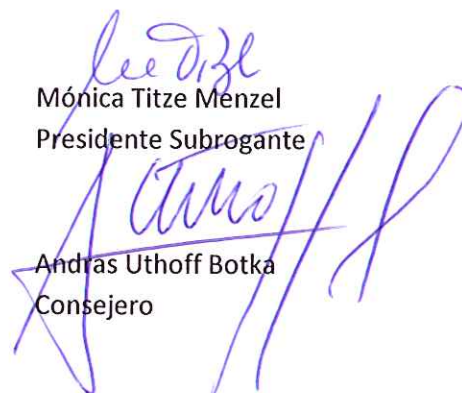 Mónica Titze Menzel
Presidente Subrogante
Andras Uthoff Botka
Consejero